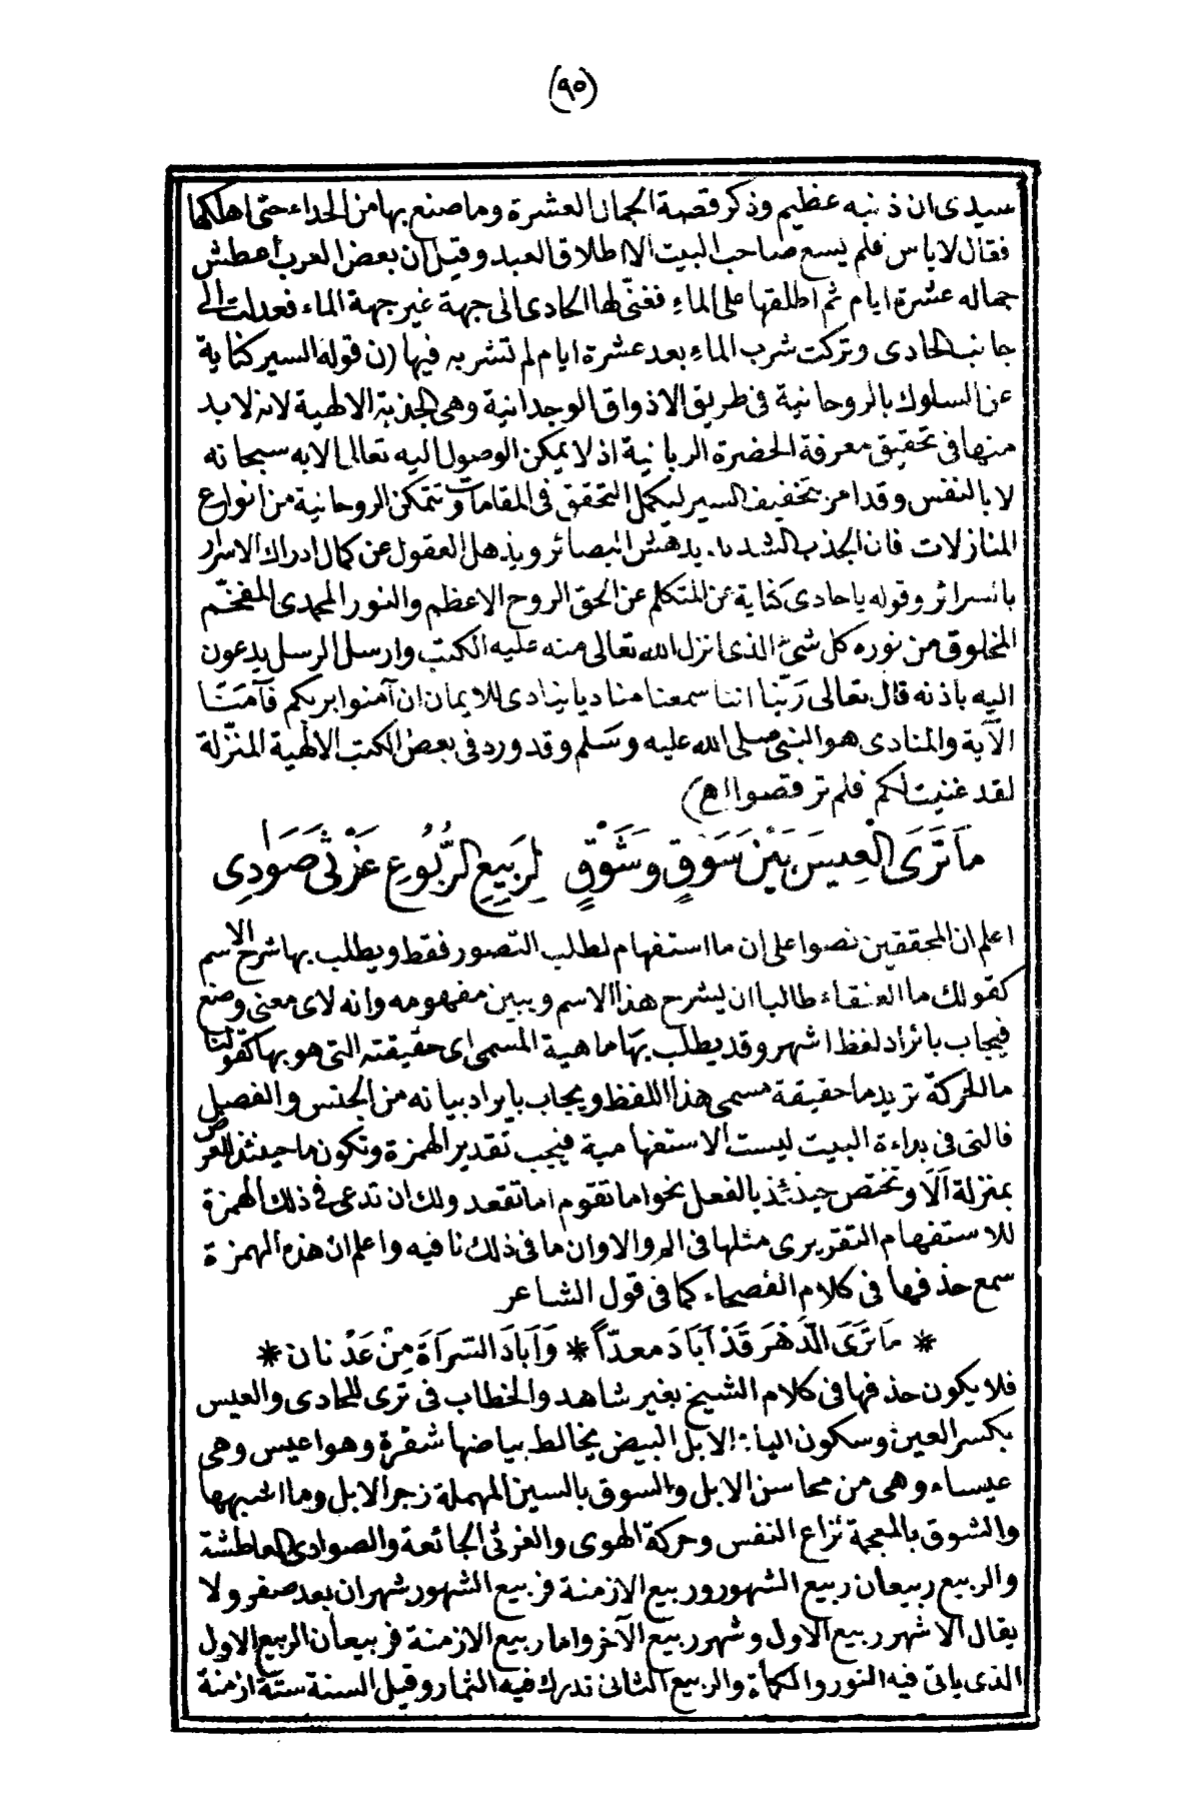 (٩٠)
سيدى ان ذنبه عظيم وذكر قصة الجمال العشرة وما صنع بها من الحداء حتى اهلكها
فقال لا باس فلم يسع صاحب البيت الا اطلاق العبد وقيل ان بعض العرب أعطش
جماله عشرة ايام ثم اطلقها على الماء فغنّى لها الحادى الى جهة غير جهة الماء فعدلت الى
جانب الحادى وتركت شرب الماء بعد عشرة ايام لم تشربه فيها (ن قوله السير كناية
عن السلوك بالروحانية فى طريق الاذواق الوجدانية وهى الجذبة الالهية لانه لا بد
منها فى تحقيق معرفة الحضرة الربانية اذ لا يمكن الوصول اليه تعالى الا به سبحانه
لا بالنفس وقد امر بتخفيف السير ليكمل التحقق فى المقامات وتتمكن الروحانية من انواع
المنازلات فان الجذب الشديد يدهش البصائر ويذهل العقول عن كمال ادراك الاسرار
بالسرائر وقوله يا حادى كناية عن المتكلم عن الحق الروح الاعظم والنور المحمدى المفخّم
المخلوق من نوره كل شئ الذى انزل الله تعالى منه عليه الكتب وارسل الرسل يدعون
اليه باذنه قال تعالى رَبّنا اننا سمعنا مناديا ينادى للايمان ان آمنوا بربكم فَآمَنّا
الآية والمنادى هو النبى صلى الله عليه وسَلم وقد ورد فى بعض الكتب الالهية المنزّلة
لقد غنيت لكم فلم ترقصوا اهـ)
مَا تَرَى الْعِيسَ بَيْنَ سَوْقٍ وَشَوْقٍ لِرَبِيعِ الرُّبُوعِ غَرْثَى صَوَادِى
اعلم ان المحققين نصوا على ان ما استفهام لطلب التصور فقط ويطلب بها شرح الاسم
كقولك ما العنقاء طالبا ان يشرح هذا الاسم ويبين مفهومه وانه لاى معنى وضع
فيجاب بايراد لفظ اشهر وقد يطلب بها ماهية المسمى اى حقيقته التى هو بها كقولنا
ما الحركة تريد ما حقيقة مسمى هذا اللفظ ويجاب بايراد بيانه من الجنس والفصل
فالتى فى بداءة البيت ليست الاستفهامية فيجب تقدير الهمزة وتكون ما حينئذ العرض
بمنزلة اَلَا وتختص حينئذ بالفعل نحو اما تقوم اما تقعد ولك ان تدعى فى ذلك الهمزة
للاستفهام التقريرى مثلها فى الم والا وان ما فى ذلك نافيه واعلم ان هذه الهمزة
سمع حذفها فى كلام الفصحاء كما فى قول الشاعر
* مَا تَرَى الدَّهْرَ قَدْ اَبَادَ معدّاً * وَاَبَادَ السَّرَاةَ مِنْ عَدْنان *
فلا يكون حذفها فى كلام الشيخ بغير شاهد والخطاب فى ترى للحادى والعيس
بكسر العين وسكون الياء الابل البيض يخالط بياضها شقرة وهو اعيس وهى
عيساء وهى من محاسن الابل والسوق بالسين المهملة زجر الابل وما اشبهها
والشوق بالمعجمة نزاع النفس وحركة الهوى والغرثى الجائعة والصوادى العاطشة
والربيع ربيعان ربيع الشهور وربيع الازمنة فربيع الشهور شهران بعد صفر ولا
يقال الا شهر ربيع الاول وشهر ربيع الآخر واما ربيع الازمنة فربيعان الربيع الاول
الذى ياتى فيه النور والكمأة والربيع الثانى تدرك فيه الثمار وقيل السنة ستة ازمنة